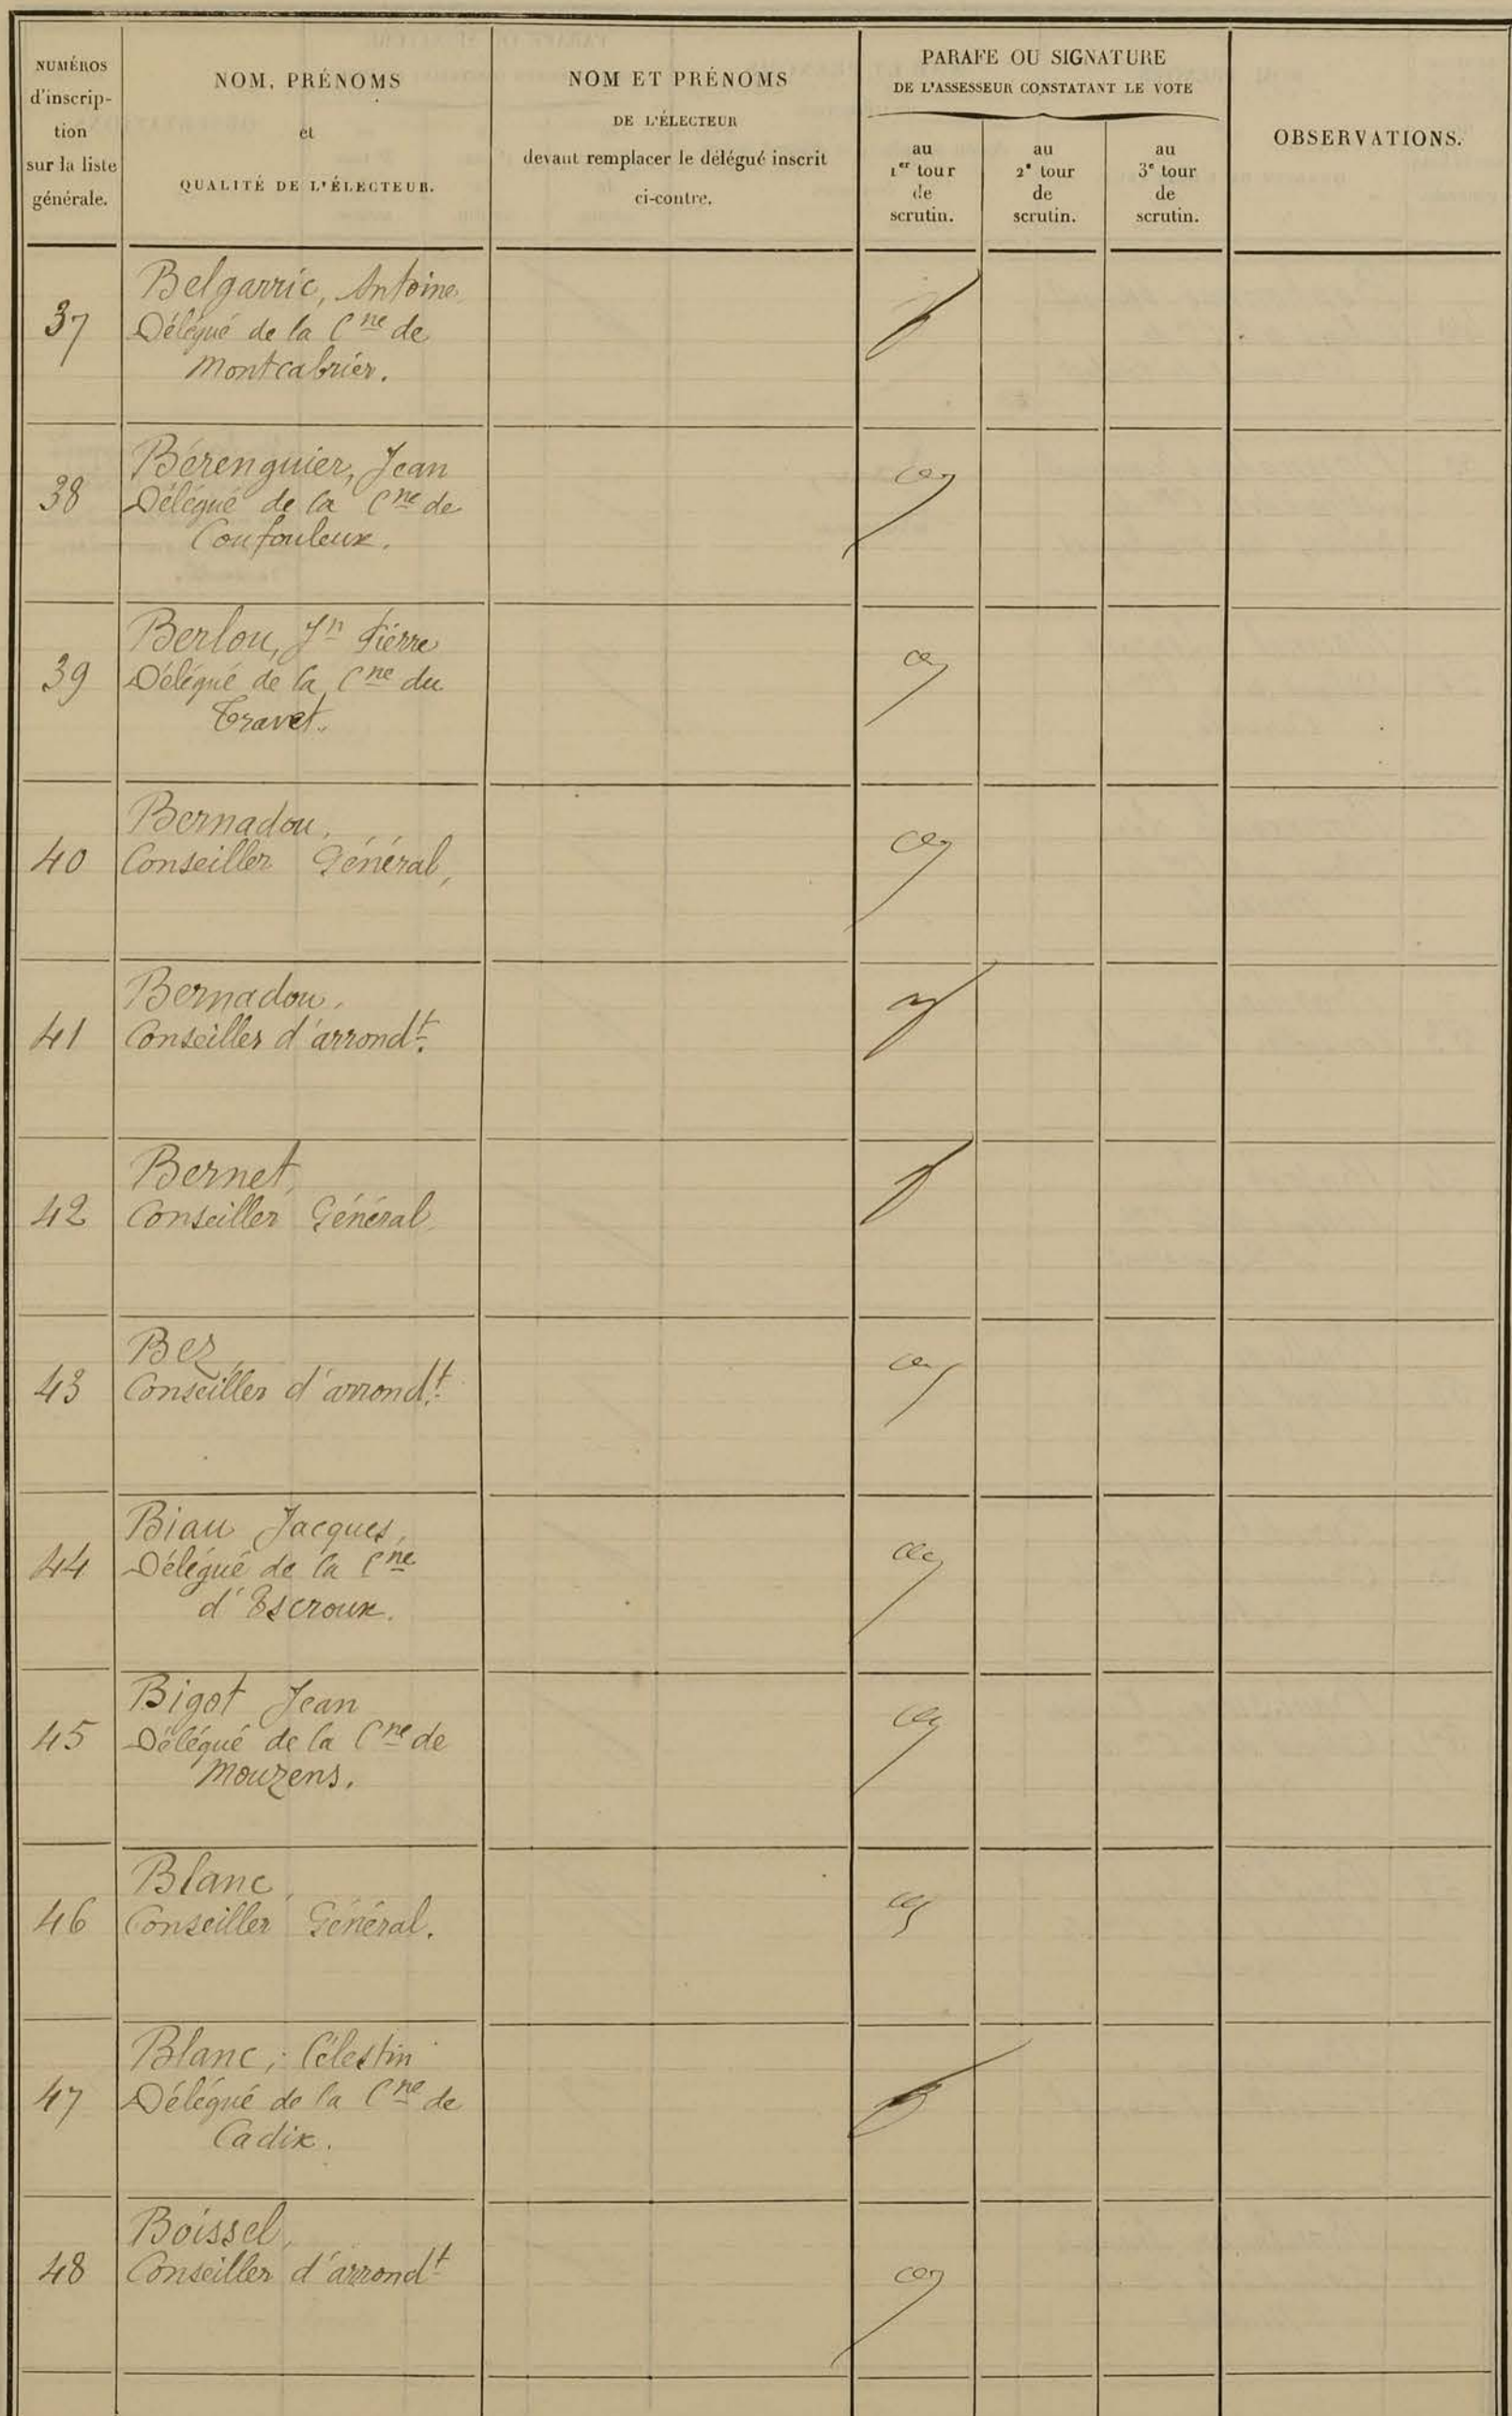 NUMÉROS
d'inscrip-
tion
sur la liste
générale.
NOM, PRÉNOMS
et
QUALITÉ DE L'ÉLECTEUR.
NOM ET PRÉNOMS
DE L'ÉLECTEUR
devant remplacer le délégué inscrit
ci-contre.
PARAFE OU SIGNATURE
DE L'ASSESSEUR CONSTATANT LE VOTE
au
1er tour
de
scrutin.
au
2e tour
de
scrutin.
au
3e tour
de
scrutin.
OBSERVATIONS.
37
Belgarric, Antoine
Délégué de la Cne de
Montcabrier.
38
Bérenguier, Jean
Délégué de la Cne de
Coufouleux.
39
Berlou, Jn Pierre
Délégué de la Cne du
Travet.
40
Bernadou,
Conseiller Général,
41
Bernadou,
Conseiller d'arrondt.
42
Bernet,
Conseiller Général
43
Bez
Conseiller d'arrondt.
44
Biau Jacques,
Délégué de la Cne
d'Escroux.
45
Bigot Jean
Délégué de la Cne de
Mouzens.
46
Blanc,
Conseiller Général.
47
Blanc, Célestin
Délégué de la Cne de
Cadix.
48
Boissel,
Conseiller d'arrondt